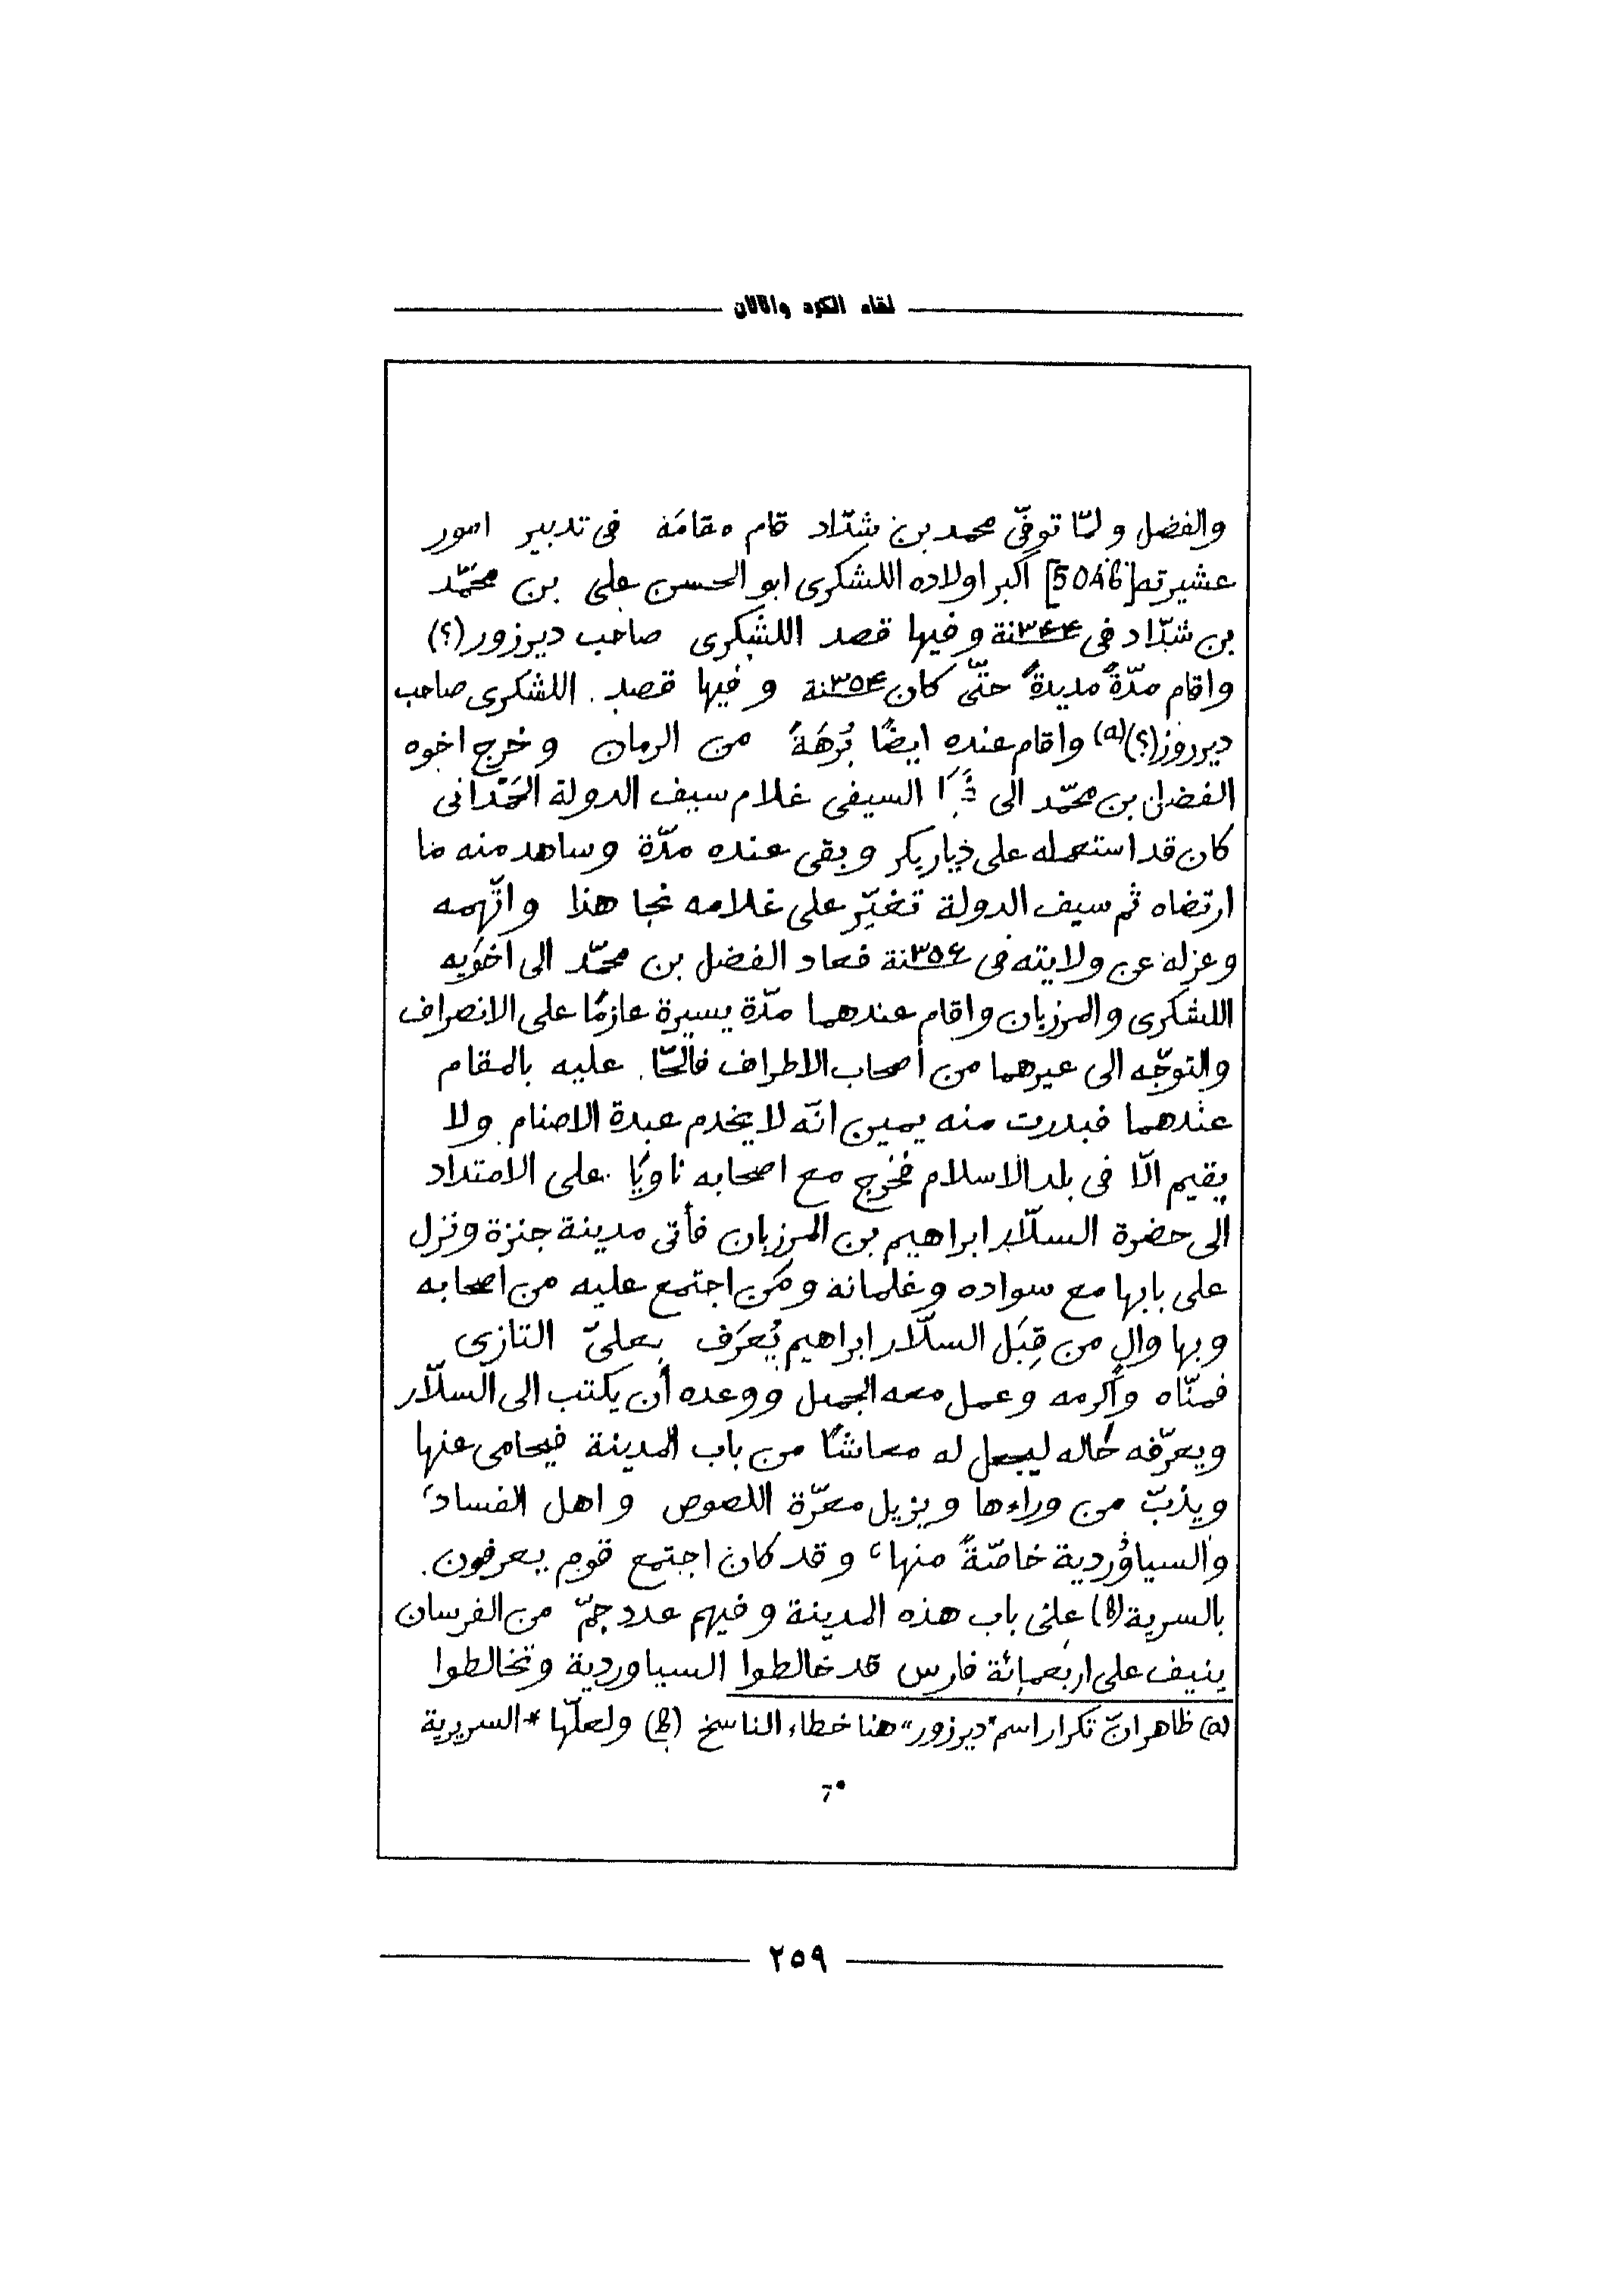 لقاء الكرد واللان
والفضل ولمّا توفّى محمد بن شدّاد قام مقامَه فى تدبير امور
عشيرته [504b] اكبر اولاده اللشكرى ابو الحسن على بن محمّد
بن شدّاد فى سنة ٣٤٤ وفيها قصد اللشكرى صاحب ديرزور (؟)
واقام مدّةً مديدةً حتّى كان سنة ٣٥٤ وفيها قصد اللشكرى صاحب
ديرروز (؟) (a) واقام عنده ايضًا بُرهَةً من الزمان وخرج اخوه
الفضل بن محمّد الى السيفى غلام سيف الدولة الحَمْدانى
كان قد استعمله على ديار بكر وبقى عنده مدّة وساهد منه ما
ارتضاه ثم سيف الدولة تغيّر على غلامه نجا هذا واتّهمه
وعزله عن ولايته فى سنة ٣٥٤ فعاد الفضل بن محمّد الى اخوَيه
اللشكرى والمرزبان واقام عندهما مدّة يسيرة عازمًا على الانصراف
والتوجّه الى غيرهما من أصحاب الاطراف فالحّا عليه بالمقام
عندهما فبدرت منه يمين انّه لا يخدم عبدة الاصنام ولا
يقيم الّا فى بلد الاسلام فخرج مع اصحابه ناويًا على الامتداد
الى حضرة السلّار ابراهيم بن المرزبان فأتى مدينة جنزة ونزل
على بابها مع سواده وغلمانه ومَن اجتمع عليه من اصحابه
وبها والٍ من قِبَل السلّار ابراهيم يُعرَف بعلىّ التازى
فمنّاه وأكرمه وعمل معه الجميل ووعده أن يكتب الى السلّار
ويعرّفه حاله ليجعل له معاشًا من باب المدينة فيحامى عنها
ويذبّ من وراءها ويزيل معرّة اللصوص واهل الفساد،
والسياوُردية خاصّةً منها، وقد كان اجتمع قوم يعرفون
بالسرية (b) على باب هذه المدينة وفيهم عدد جمّ من الفرسان
ينيف على اربعمائة فارس قد خالطوا السياوردية وتخالطوا
(a) ظاهر انّ تكرار اسم "ديرزور" هنا خطاء الناسخ (b) ولعلّها *السريرية
٦٠
٢٥٩